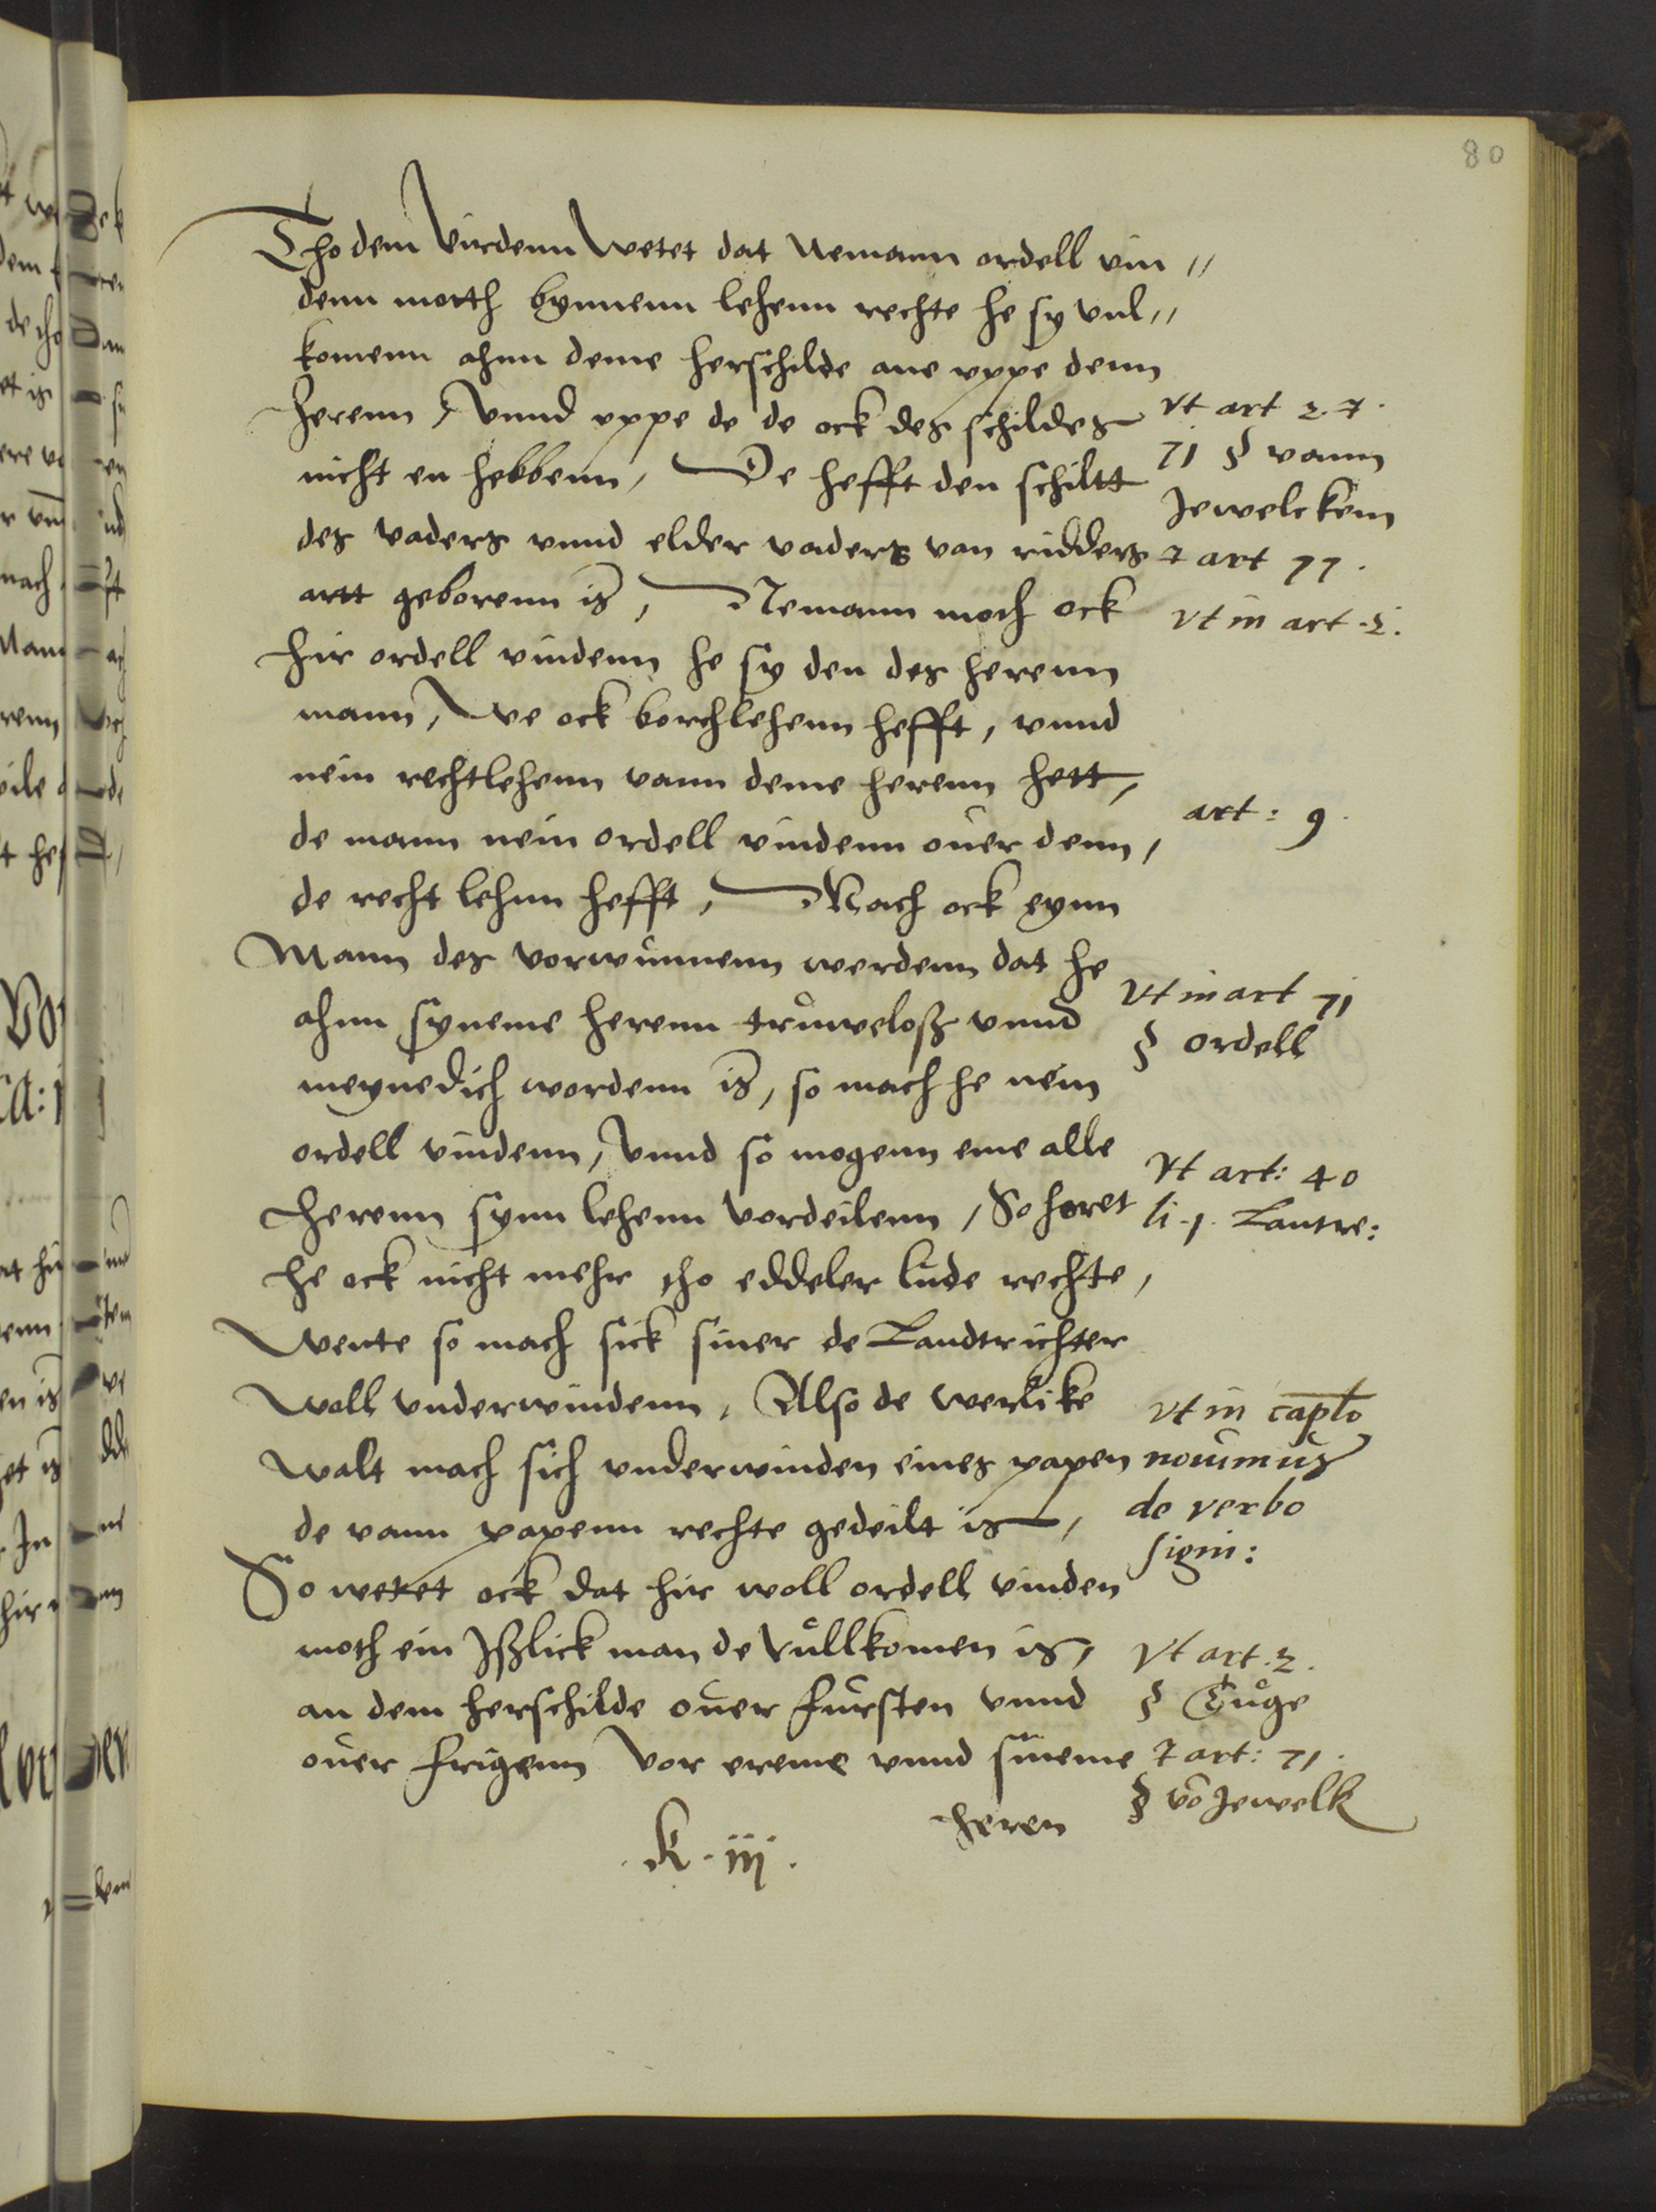 80
Tho dem Virdenn Wetet dat Nemann ordell vin //
denn moth bynnenn lehenn rechte he sy vul //
komenn ahnn deme herschilde ane vppe denn
herenn, Vnnd vppe de de ock des schildes
nicht en hebbenn, De hefft den schiltt
des vaders vnnd elder vaders van ridders
artt geborenn is, Nemann moch ock
hir ordell vindenn he sy den des herenn
mann, We ock borchlehenn hefft, vnnd
nein rechtlehenn vann deme herenn hett,
de mann nein ordell vindenn ouer denn,
de recht lehnn hefft, Mach ock eynn
Mann des vorwunnenn werdenn dat he
ahnn syneme herenn truweloß vnnd
meynedich wordenn is, so mach he nein
ordell vindenn, Vnnd so mogenn eme alle
herenn synn lehenn vordeilenn, So horet
he ock nicht mehr tho eddeler lude rechte,
Wente so mach sick siner de Landtrichter
Woll vnderwindenn, Also de werlike
Walt mach sich vnderwinden eines papen
de vann papenn rechte gedeilt is,
So wetet ock dat hir woll ordell vinden
moth ein Jßlick man de Vullkomen is,
an dem herschilde ouer fursten vnnd
ouer frigenn Vor ereme vnnd sineme
heren
. K . iij .
Vt art 2. 7.
71 § vann
Jewelckem
7 art 77.
Vt in art .2.
art: 9.
Vt in art 71
§ ordell
Vt art: 40
li .1. Lantre:
vt in caplo
nouimus
de verbo
signi:
Vt art .2.
§ Tuge
7 art: 71.
§ vō Jewelk